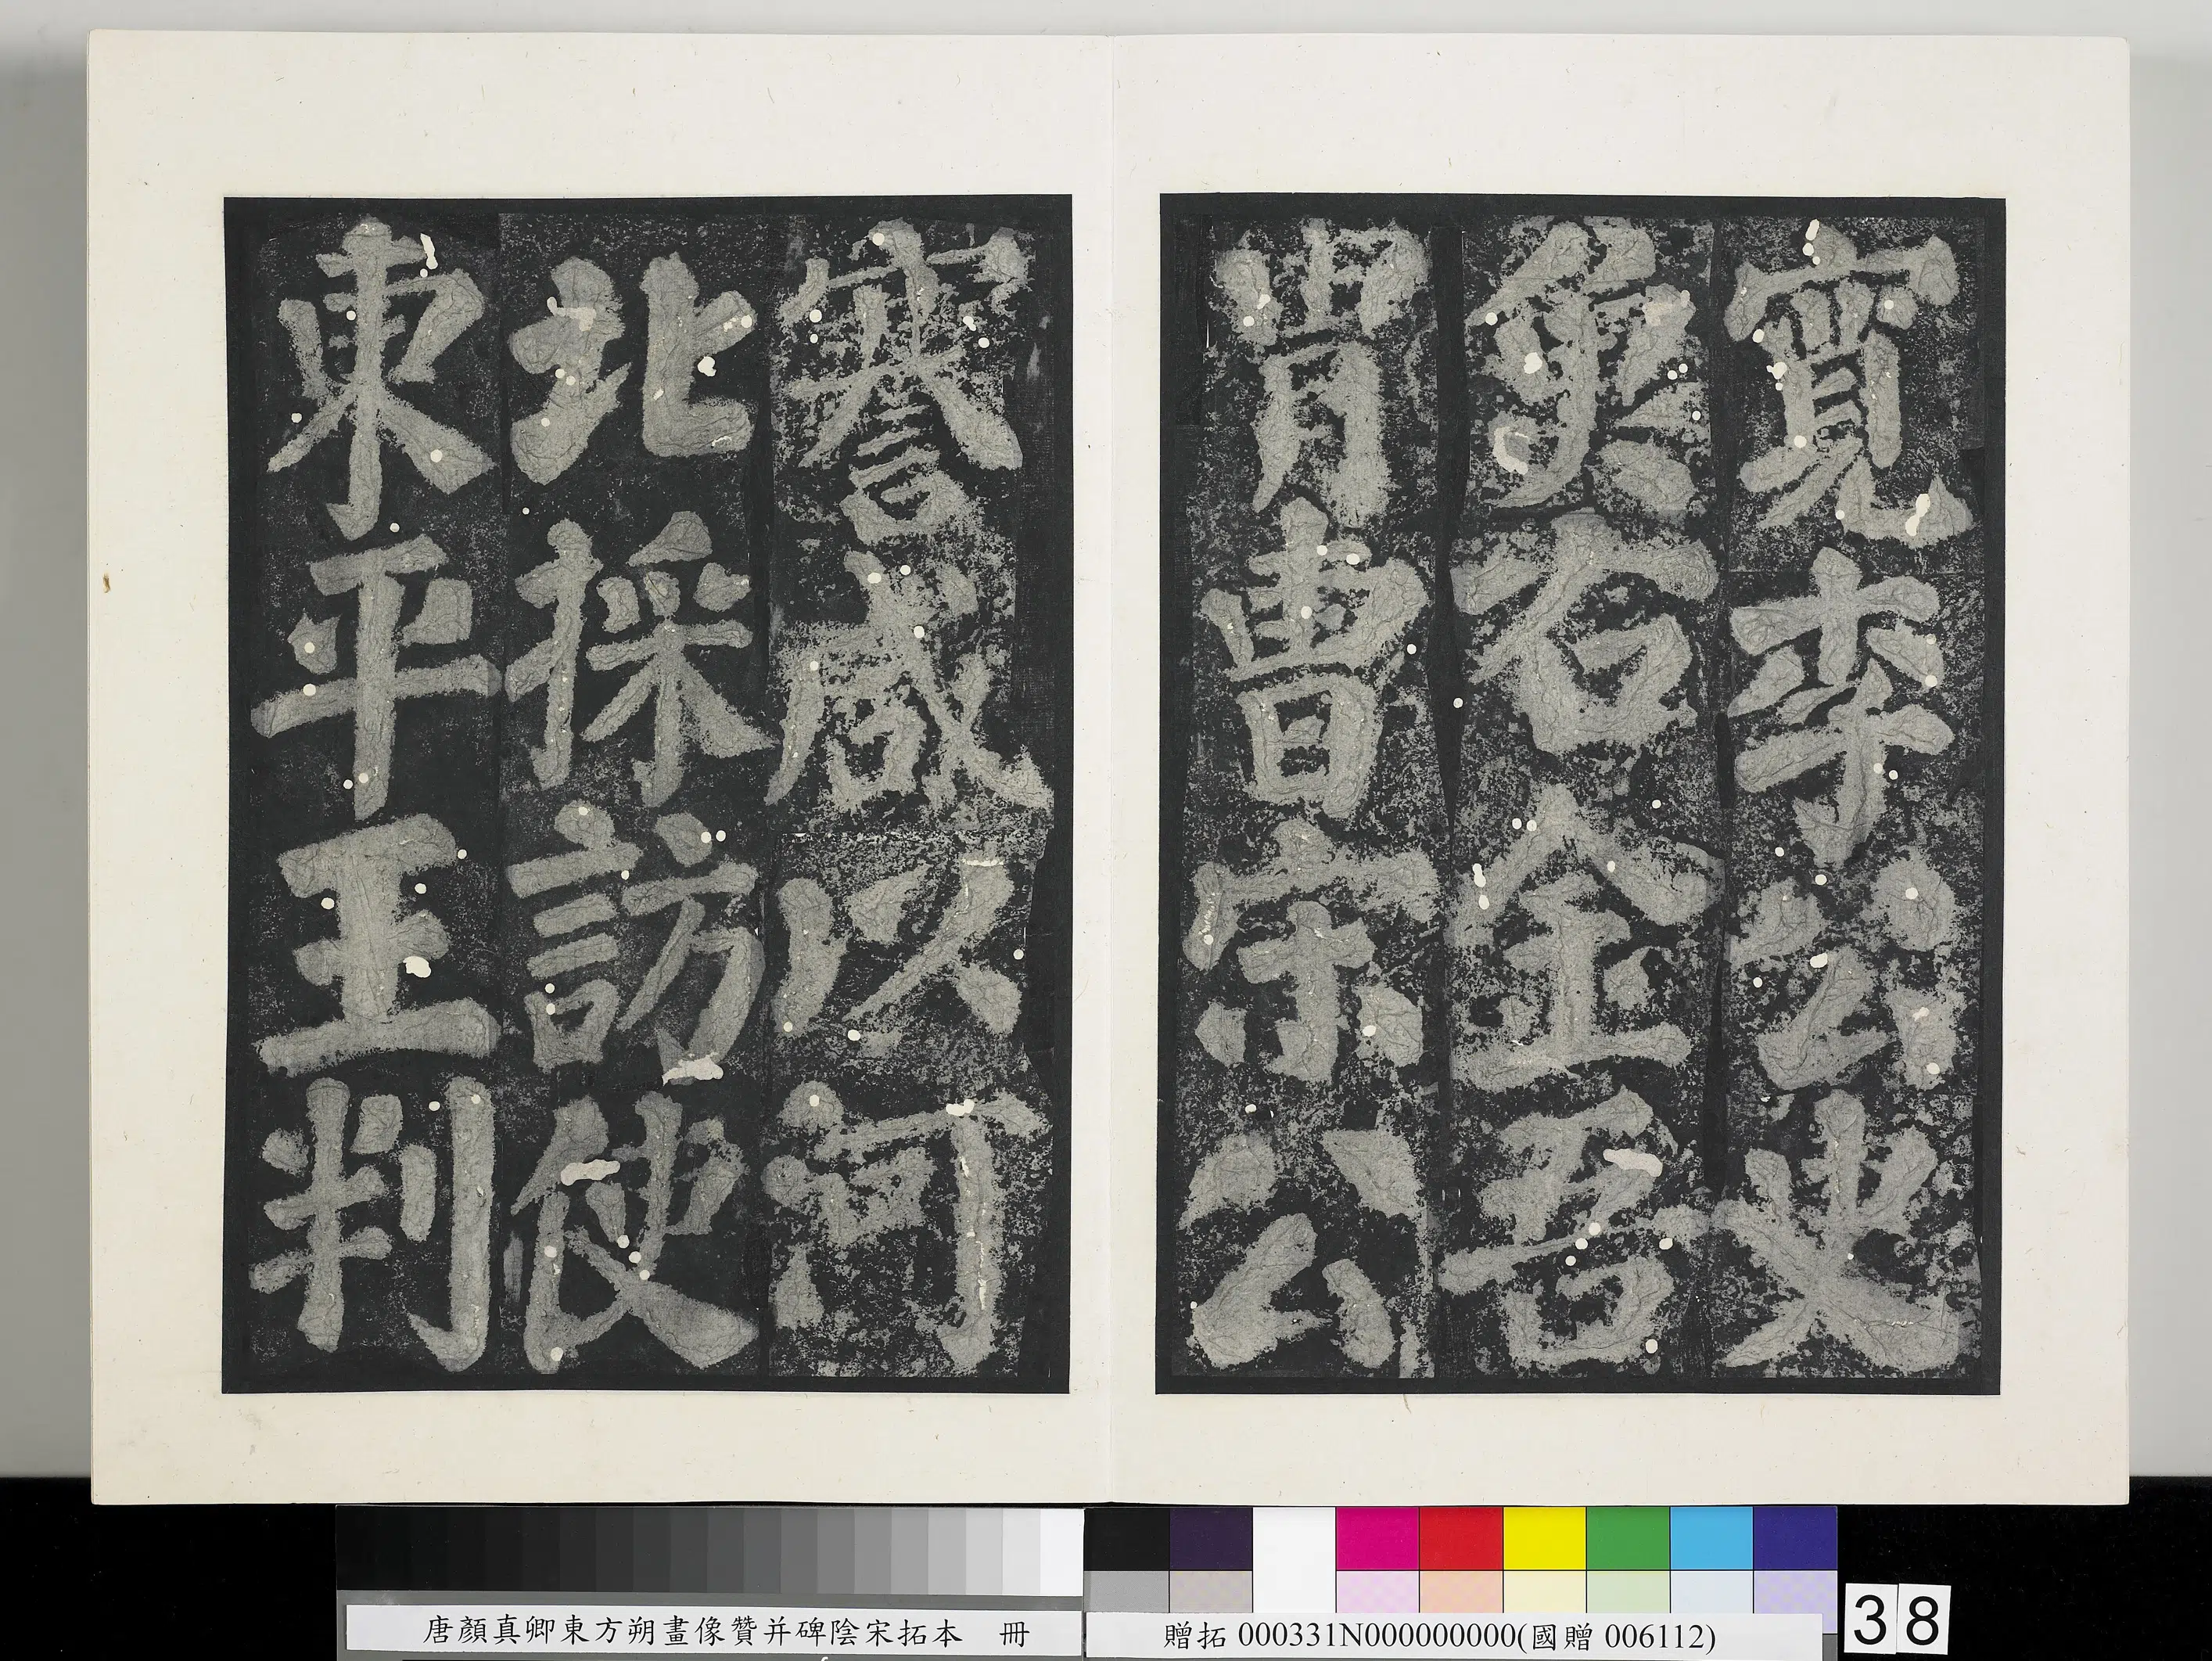 寬李公史
魚右金吾
胄曹宋公
謇咸以河
北採訪使
東平王判
唐顏真卿東方朔畫像贊并碑陰宋拓本　冊
贈拓 000331N000000000(國贈 006112)
38